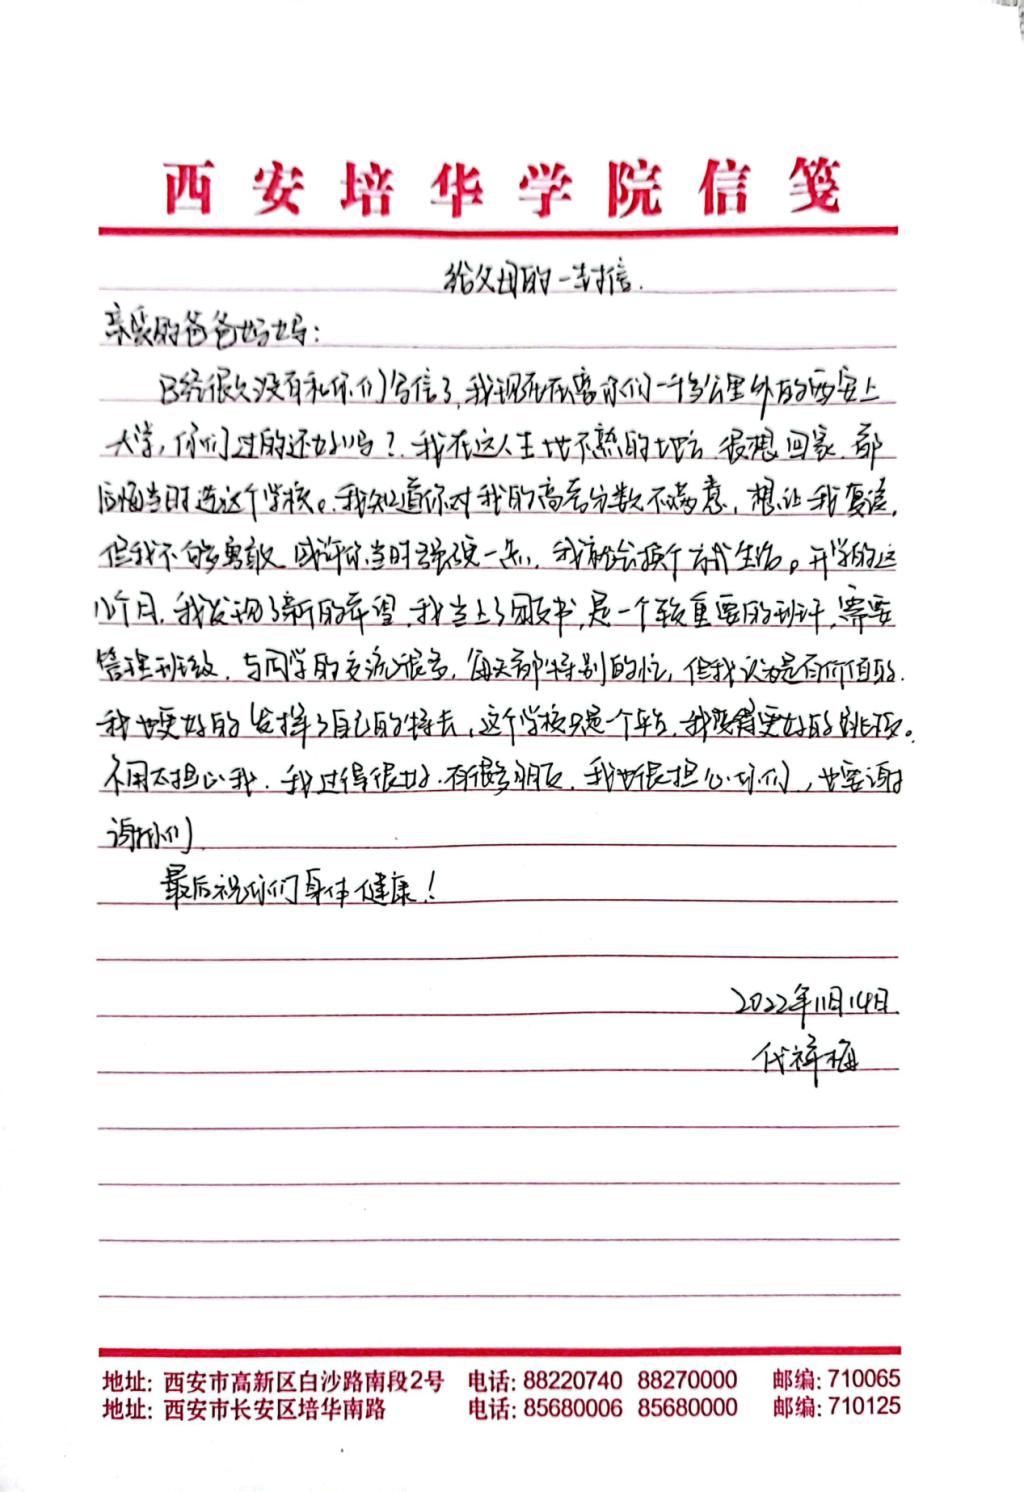 西安培华学院信笺
给父母的一封信.
亲爱的爸爸妈妈:
已经很久没有和你们写信了,我现在在离你们一千多公里外的西安上
大学,你们过的还好吗?我在这人生地不熟的地方.很想回家.都
后悔当时选这个学校。我知道你对我的高考分数不满意,想让我复读,
但我不够勇敢.或许你当时强硬一点,我就会换个方式生活。开学的这
几个月,我发现了新的希望,我当上了团支书,是一个较重要的班干,需要
管理班级,与同学的交流很多,每天都特别的忙,但我认为是有价值的.
我也更好的发挥了自己的特长,这个学校只是一个平台,我要有更好的跳板。
不用太担心我.我过得很好.有很多朋友.我也很担心你们,也要谢
谢你们
最后祝你们身体健康!
2022年11月14日.
代祥梅
地址: 西安市高新区白沙路南段2号 电话: 88220740 88270000 邮编: 710065
地址: 西安市长安区培华南路 电话: 85680006 85680000 邮编: 710125